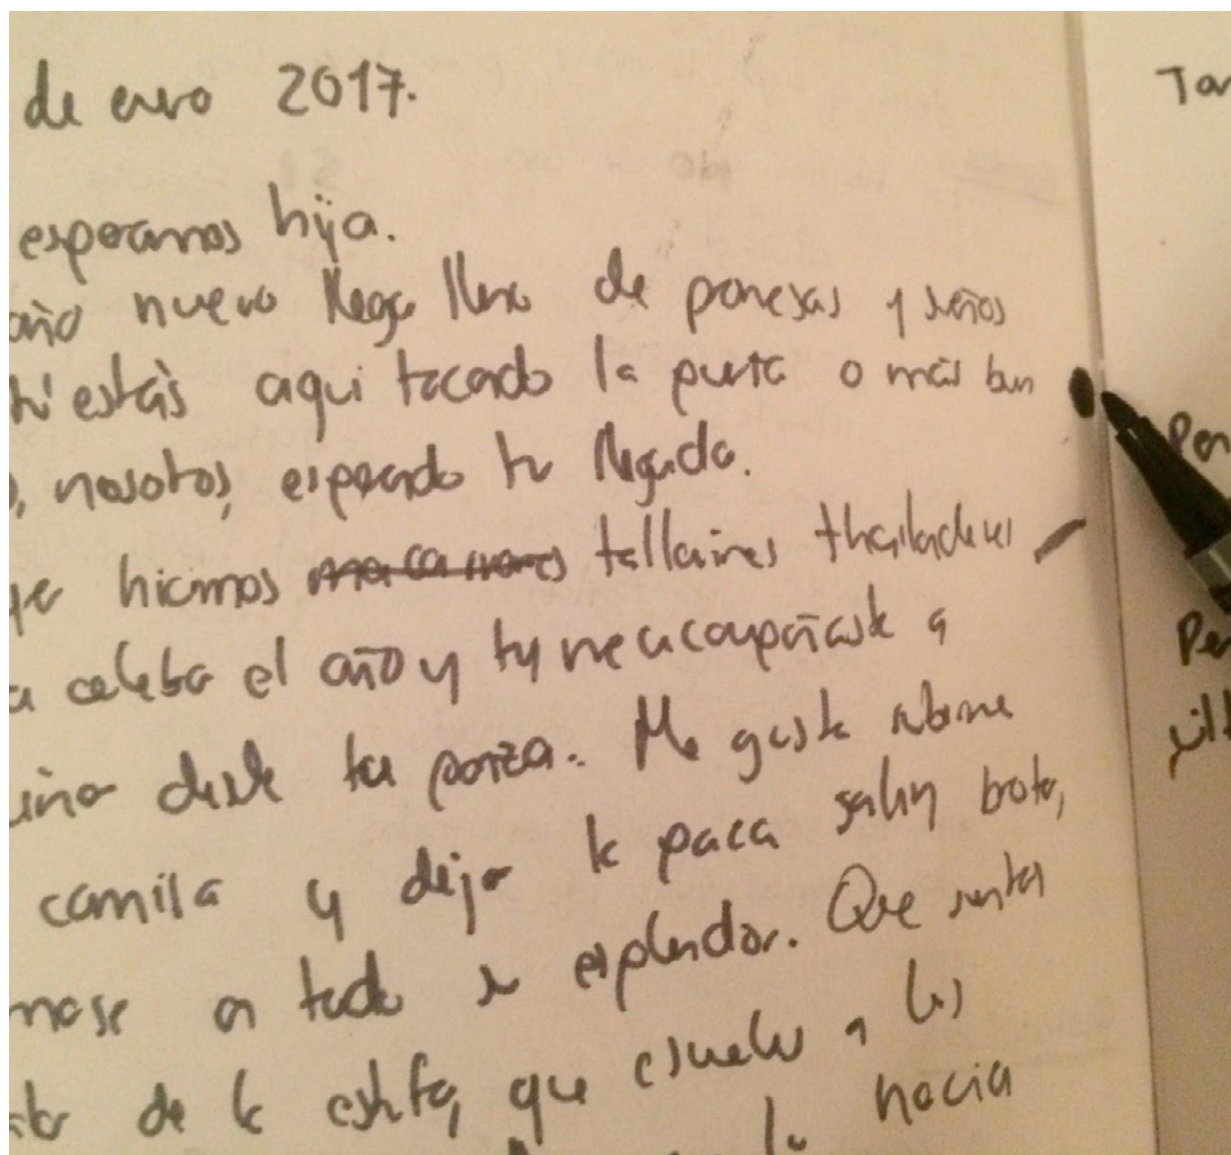 de enero 2017.
esperamos hija.
año nuevo llega lleno de promesas y sueños
tú estás aquí tocando la puerta o más bien
nosotros, esperando tu llegada.
hicimos macarrones tallarines thailandeses
celebrar el año y tu me acompañaste a
desde tu panza. Me gusta subirme
camila y dejar la panza salir y brotar,
en todo su esplendor. Que sientas
de la estufa, que escuches a los
la hacia
Tar
Per
Pe